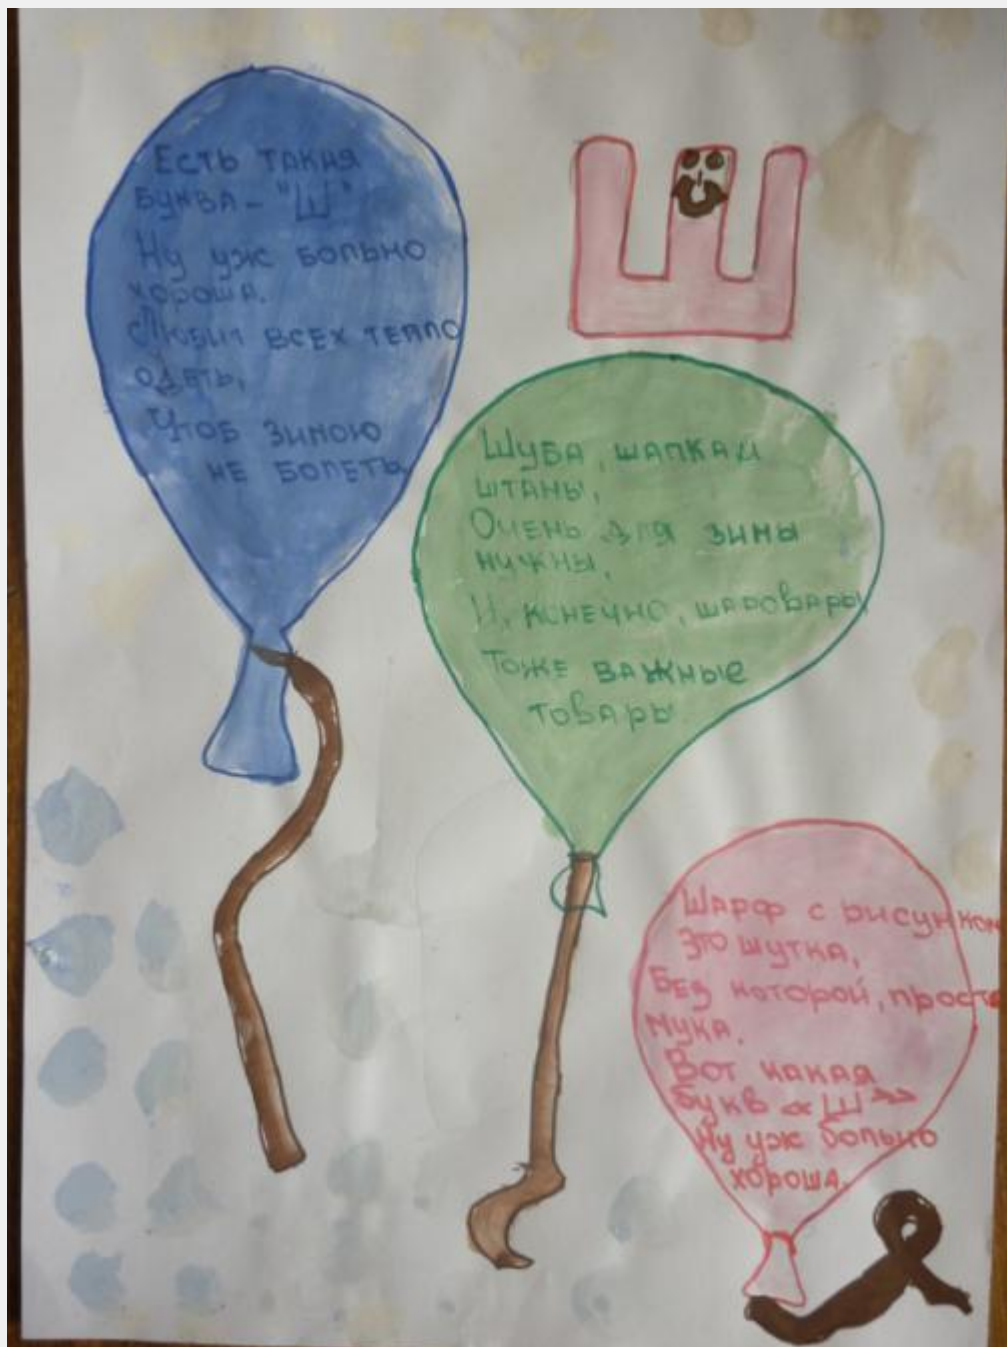 Есть такая
буква - "Ш"
Ну уж больно
хороша.
Любит всех тепло
одеть,
Чтоб зимою
не болеть
Ш
Шуба, шапка и
штаны,
Очень для зимы
нужны,
И, конечно, шаровары
Тоже важные
товары
Шарф с рисунком
Это шутка,
Без которой, просто
мука.
Вот какая
букв «Ш»
Ну уж больно
хороша.